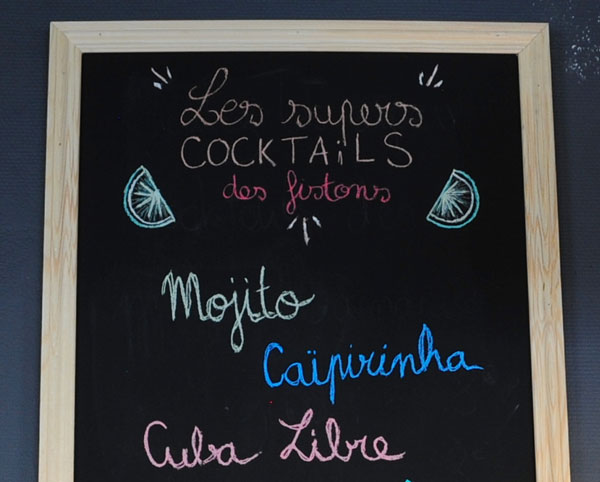 Les supers
COCKTAiLS
des fistons
Mojito
Caïpirinha
Cuba Libre